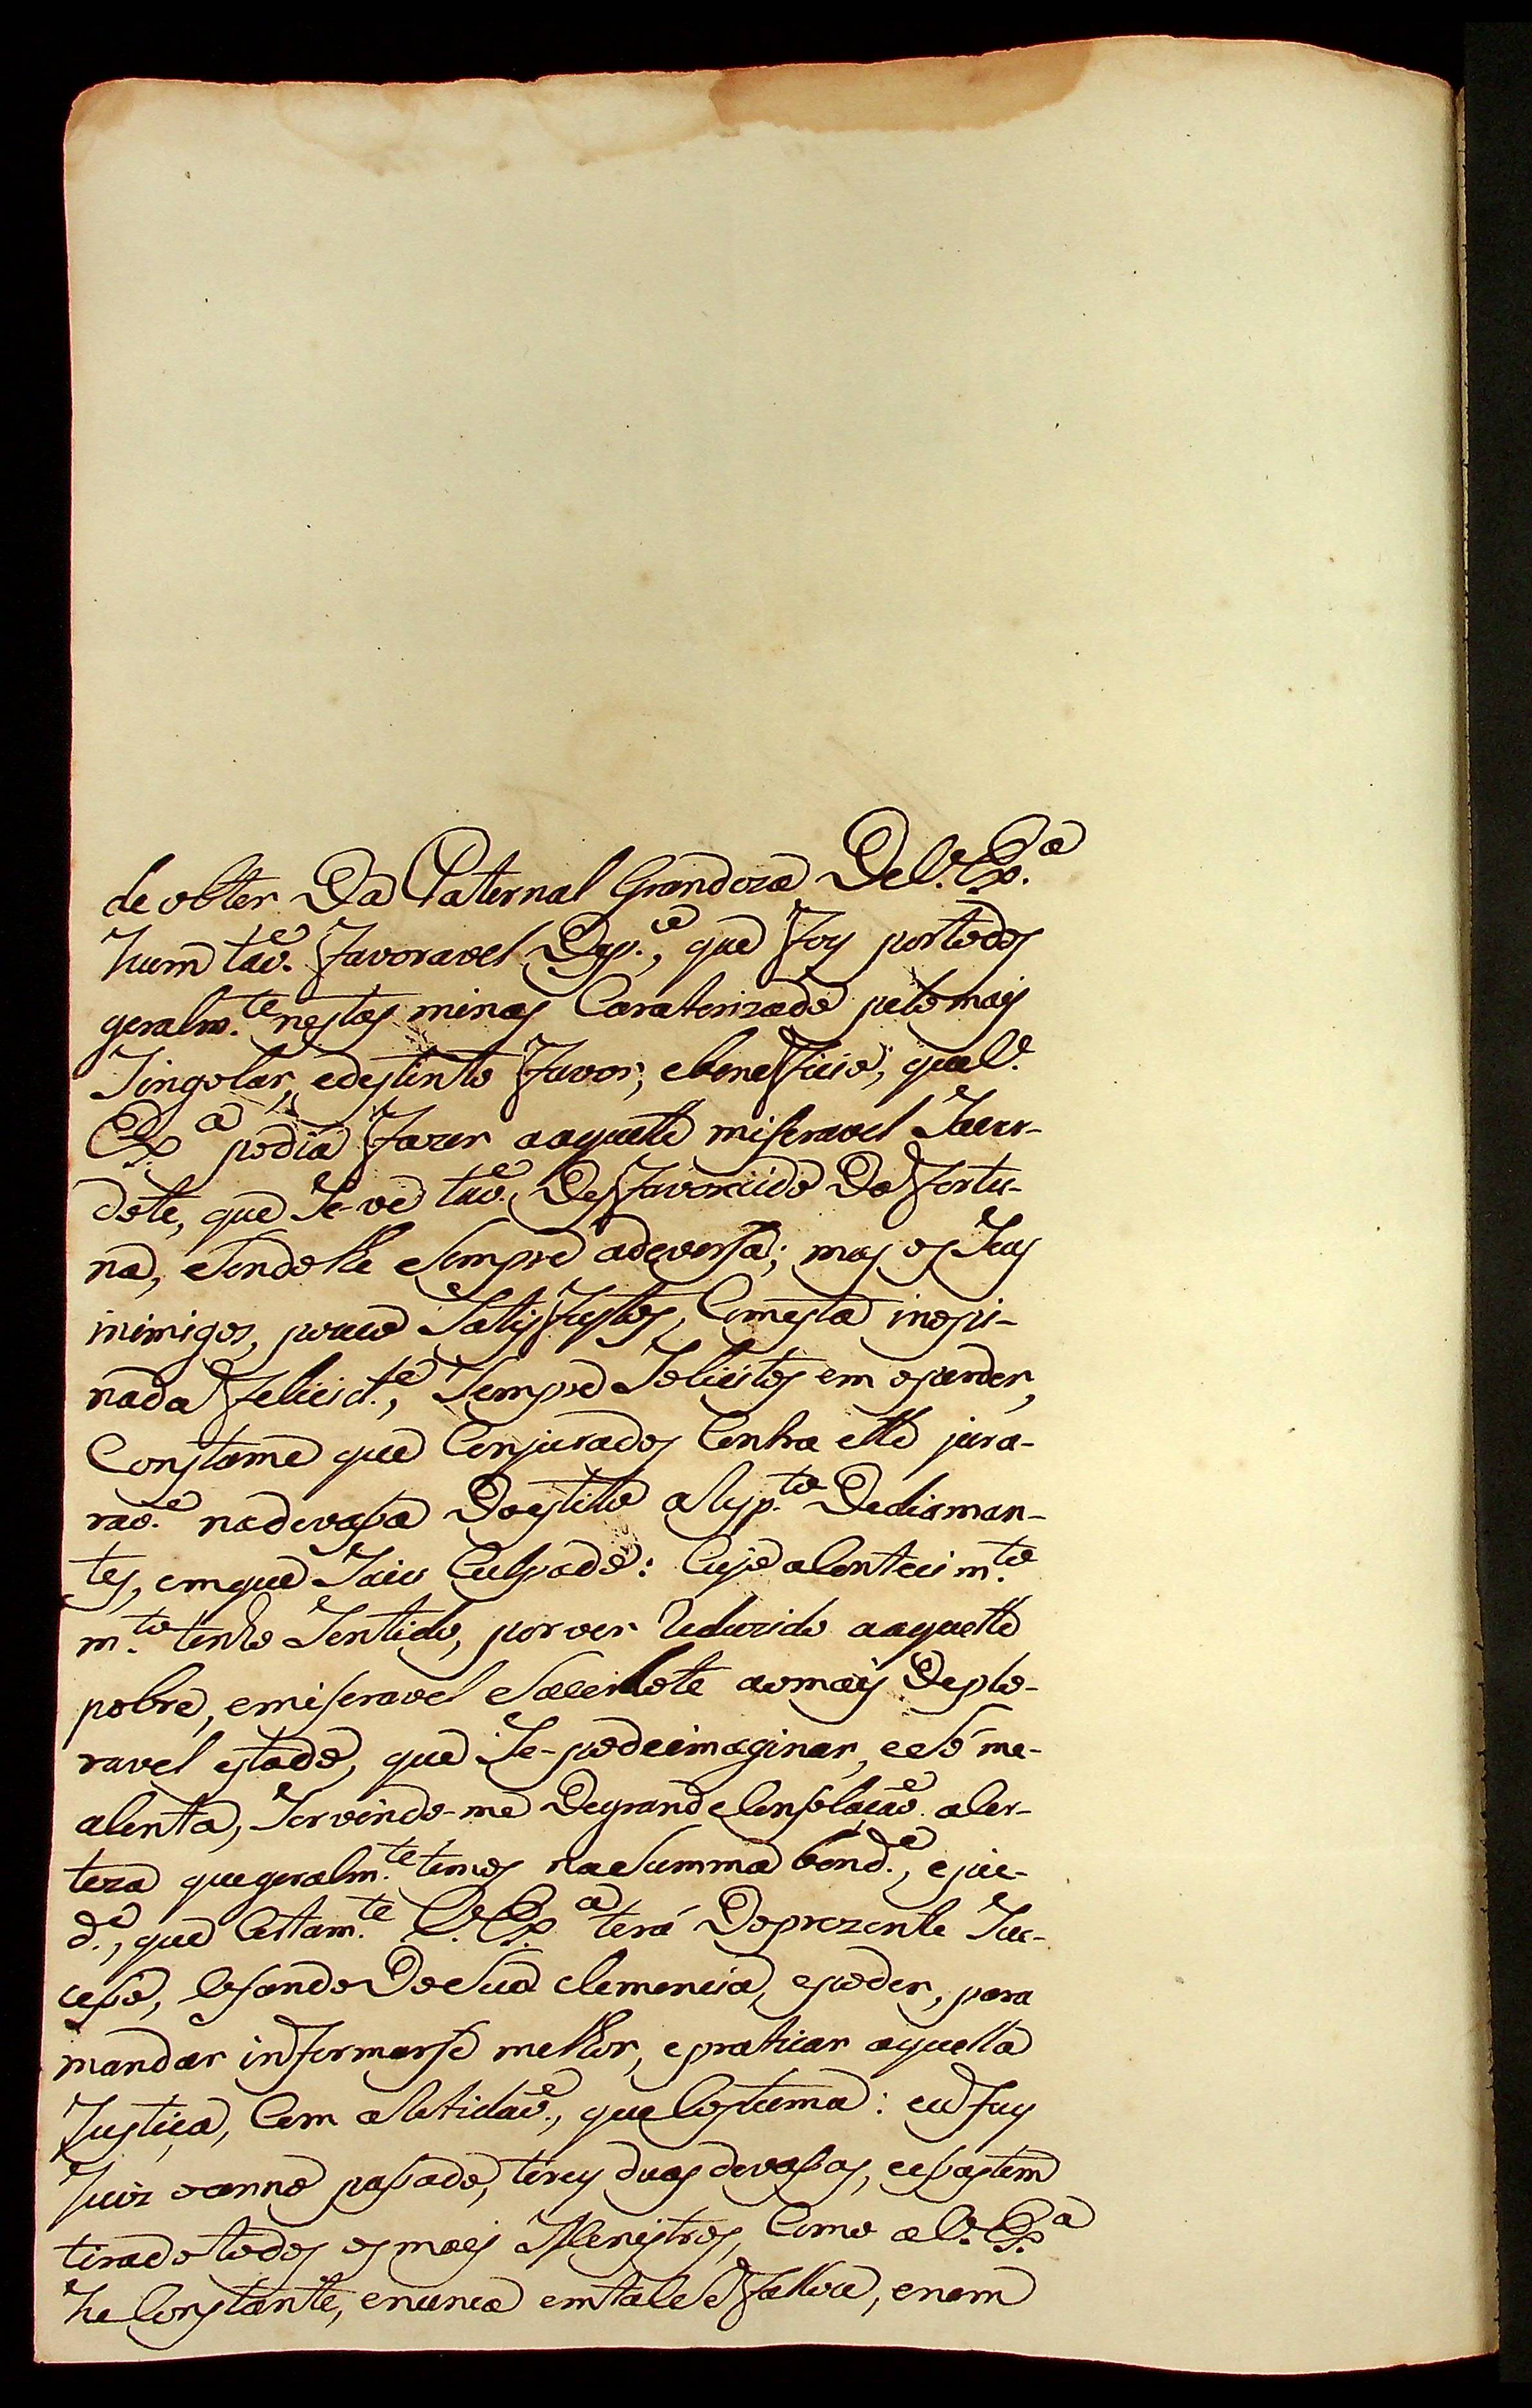 de obter Da Paternal Grandeza De V. Ex.ª
hum taõ favoravel Desp.º, que foy por todos
geralm.te nestas minas Caraterizado pelo mais
Singolar, e destinto favor, e beneficio, que V.
Ex.ª podia fazer a aquelle miseravel Sacer-
dote, que Se-ve taõ Desfavorecido Da fortu-
na, Sendolhe Sempre adeversa; mas os Seus
inimigos, pouco Satisfeitos, Com esta inopi-
nada felicid.e, Sempre Solicitos em o perder,
Constame que Conjurados Contra elle jura-
raõ na devaça Do estilo a resp.to De diaman-
tes, em que Saio Culpado: Cujo acontecim.to
m.to tenho Sentido, por ver reduzido a aquelle
pobre, e miseravel Sacerdote ao mais Deplo-
ravel estado, que Se-pode imaginar, e Só me-
alenta, Servindo-me De grande Consolaçaõ a Cer-
teza que geralm.te temos na Summa bond.e, e pie-
d.e, que Certam.te V. Ex.ª terá Do prezente Suc-
cesso, Uzando Da Sua clemencia, e poder, para
mandar informarse melhor, e praticar aquella
Justiça, Com a retidaõ, que Costuma: eu fuy
Juiz o anno passado, tirey duas devaças, e essas tem
tirado todos os mais Menistros, Como a V. Ex.ª
he Constante, e nunca em tal Se fallou, e nem